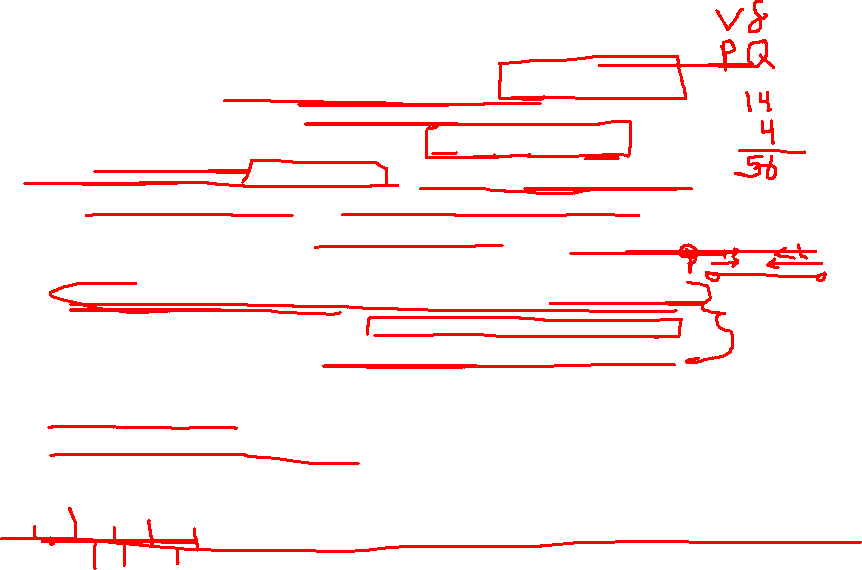 V8
PQ
14
4
56
P